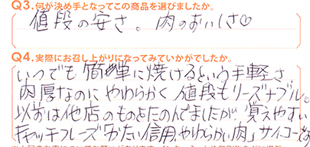 Q3.何が決め手となってこの商品を選びましたか。
値段の安さ。肉のおいしさ♡
Q4.実際にお召し上がりになってみていかがでしたか。
いつでも簡単に焼けるという手軽さ。
肉厚なのにやわらかく値段もリーズナブル。
以前は他店のものをたのんでましたが、覚えやすい
キャッチフレーズ「かたい信用、やわらかい肉」サイコーです